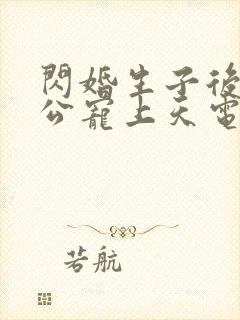 閃婚生子後
公寵上天電
若航